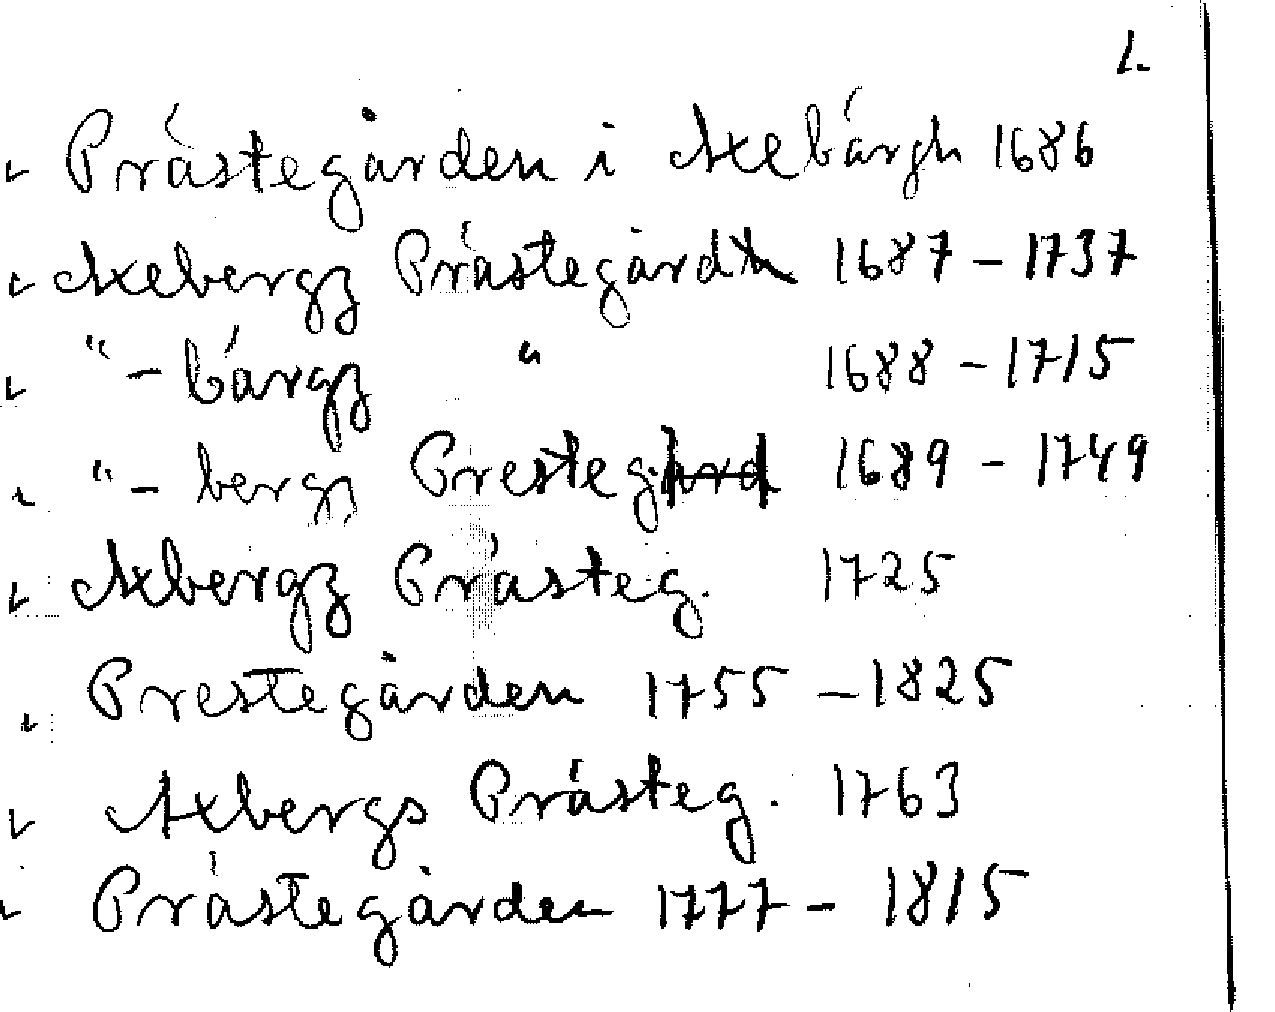 1.
Prästegården i Axebärgh 1686
Axebergz Prästegård 1687 - 1737
"- bärgz " 1688 - 1715
"- bergz Presteg. 1689 - 1749
Axbergz Prästeg. 1725
Prestegården 1755 - 1825
Axbergs Prästeg. 1763
Prästegården 1777 - 1815